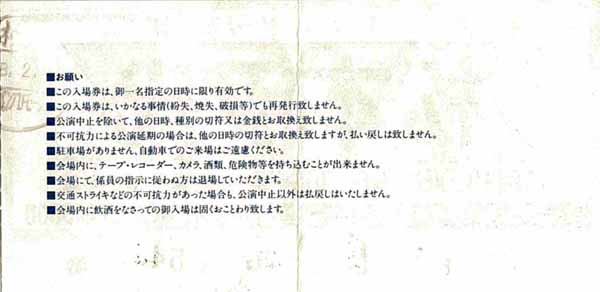 ■お願い
■この入場券は、御一名指定の日時に限り有効です。
■この入場券は、いかなる事情(紛失、焼失、破損等)でも再発行致しません。
■公演中止を除いて、他の日時、種別の切符又は金銭とお取換え致しません。
■不可抗力による公演延期の場合は、他の日時の切符とお取換え致しますが、払い戻しは致しません。
■駐車場がありません、自動車でのご来場はご遠慮ください。
■会場内に、テープ・レコーダー、カメラ、酒類、危険物等を持ち込むことが出来ません。
■会場にて、係員の指示に従わぬ方は退場していただきます。
■交通ストライキなどの不可抗力があった場合も、公演中止以外は払戻しはいたしません。
■会場内に飲酒をなさっての御入場は固くおことわり致します。